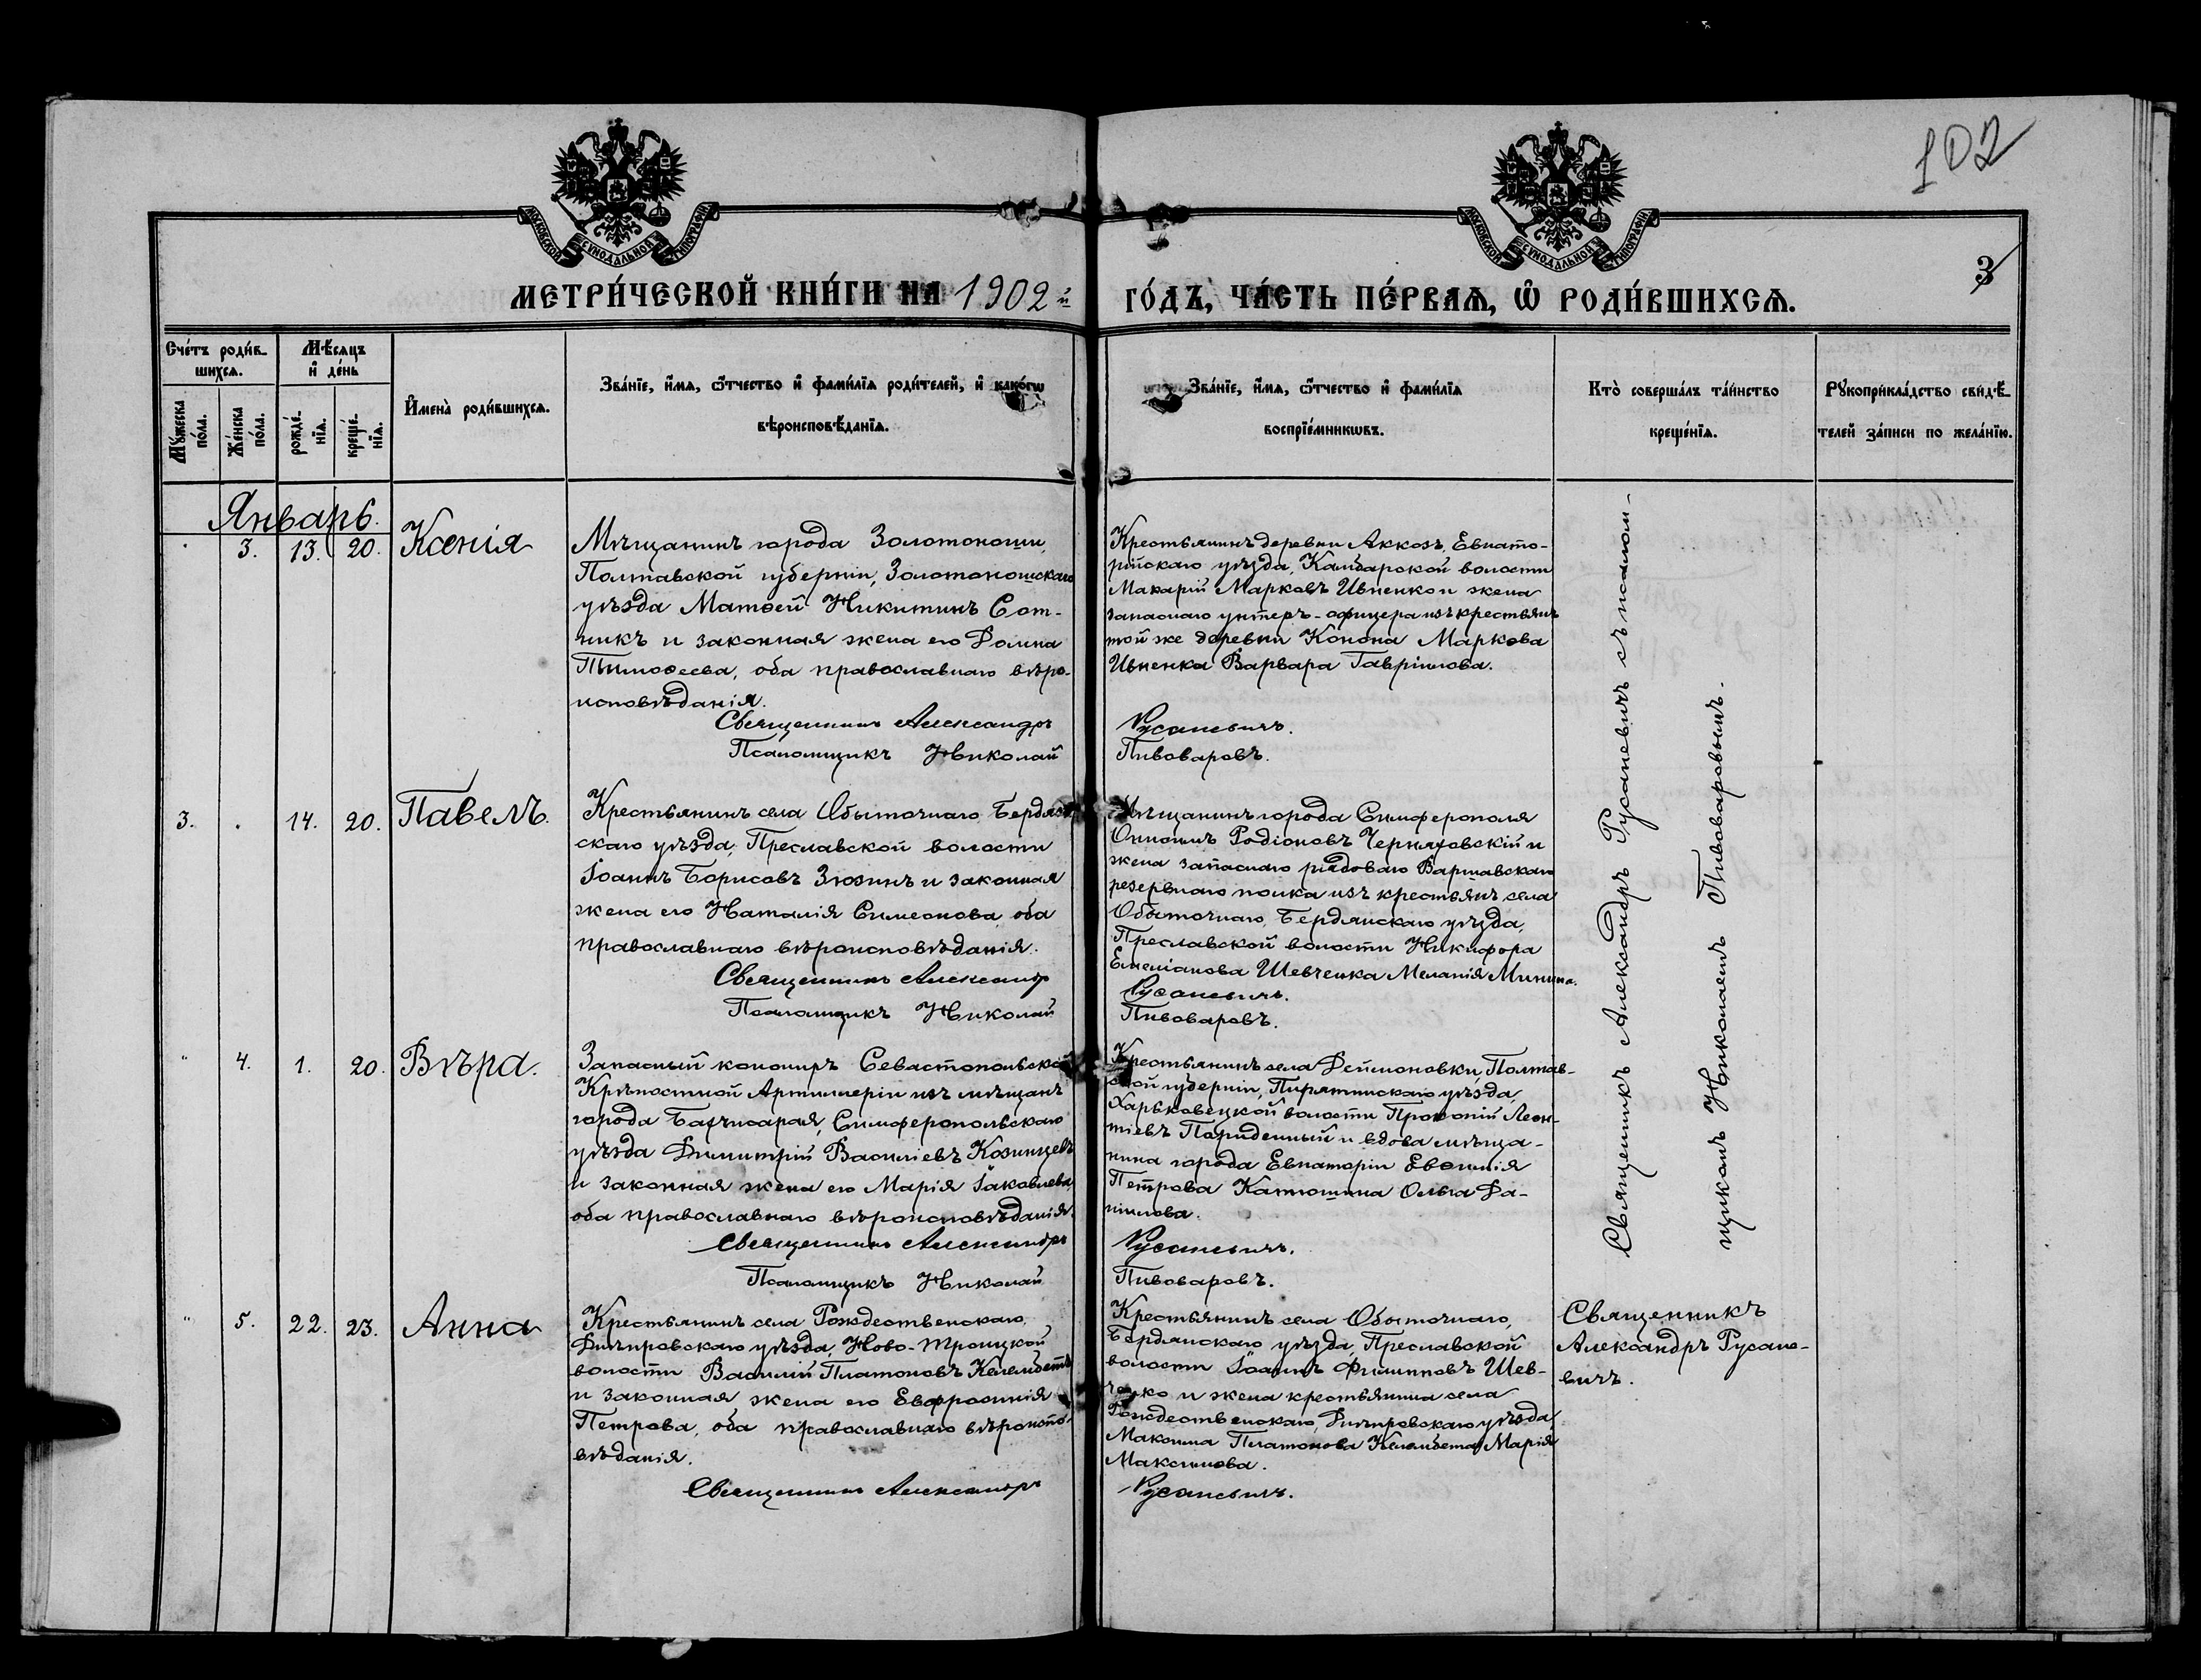 102
МОСКОВСКОЙ СѴНОДАЛЬНОЙ ТИПОГРАФІИ
МОСКОВСКОЙ СѴНОДАЛЬНОЙ ТИПОГРАФІИ
3
МЕТРИ́ЧЕСКОЙ КНИ́ГИ НА 1902 й
ГО́ДЪ, ЧА́СТЬ ПЕ́РВАѦ, Ѡ҆ РОДИ́ВШИХСѦ.
Сче́тъ роди́в-
шихсѧ.
Мꙋ́жеска
по́ла.
Же́нска
по́ла.
Мѣ́сѧцъ
и҆ де́нь
рожде́-
нїѧ.
креще́-
нїѧ.
И҆мена̀ роди́вшихсѧ.
Зва́нїе, и҆́мѧ, ѻ҆́тчество и҆ фами́лїѧ роди́телей, и҆ како́гѡ
вѣроисповѣ́данїѧ.
Зва́нїе, и҆́мѧ, ѻ҆́тчество и҆ фами́лїѧ
воспрїе́мникѡвъ.
Кто̀ соверша́лъ та́инство
креще́нїѧ.
Рꙋкоприкла́дство свидѣ́-
телей за́писи по жела́нїю.
Январь.
3. 13. 20. Ксенія
Мѣщанинъ города Золотоноши,
Полтавской губерніи, Золотоношскаго
уѣзда Матѳей Никитинъ Сот-
никъ и законная жена его Домна
Тимоѳеева, оба православнаго вѣро-
исповѣданія.
Священникъ Александръ
Псаломщикъ Николай
Крестьянинъ деревни Аккозъ, Евпато-
рійскаго уѣзда, Камбарской волости
Макарій Марковъ Ивненко и жена
запаснаго унтеръ-офицера изъ крестьянъ
той же деревни Конона Маркова
Ивненка Варвара Гавріилова.
Русаневичъ.
Пивоваровъ.
3. 14. 20. Павелъ.
Крестьянинъ села Обыточнаго, Бердян-
скаго уѣзда, Преславской волости
Іоаннъ Борисовъ Зюзинъ и законная
жена его Наталія Симеонова, оба
православнаго вѣроисповѣданія.
Священникъ Александръ
Псаломщикъ Николай
Мѣщанинъ города Симферополя
Родіоновъ Черняховскій и
жена запаснаго рядоваго Варшавскаго
резервнаго полка изъ крестьянъ села
Обыточнаго, Бердянскаго уѣзда,
Преславской волости Никифора
Емеліанова Шевченка Меланія Минина.
Русаневичъ.
Пивоваровъ.
" 4. 1. 20. Вѣра.
Запасный канониръ Севастопольской
Крѣпостной Артиллеріи изъ мѣщанъ
города Бахчисарая, Симферопольскаго
уѣзда Димитрій Василіевъ Козинцевъ
и законная жена его Марія Іаковлева
оба православнаго вѣроисповѣданія.
Священникъ Александръ
Псаломщикъ Николай
Крестьянинъ села Деймоновки, Полтав-
ской губерніи, Пирятинскаго уѣзда,
Харьковецкой волости Прокопій Леон-
тіевъ и вдова мѣща-
нина города Евпаторіи Евѳимія
Петрова Катюшина Ольга Да-
ніилова.
Русаневичъ.
Пивоваровъ.
" 5. 22. 23. Анна
Крестьянинъ села Рождественскаго,
Днѣпровскаго уѣзда, Ново-Троицкой
волости Василій Платоновъ Келембетъ
и законная жена его Евфросинія
Петрова, оба православнаго вѣроиспо-
вѣданія.
Священникъ Александръ
Крестьянинъ села Обыточнаго,
Бердянскаго уѣзда, Преславской
волости Іоаннъ Филипповъ Шев-
ченко и жена крестьянина села
Рождественскаго, Днѣпровскаго уѣзда
Максима Платонова Келембета Марія
Максимова.
Русаневичъ.
Священникъ Александръ Русаневичъ съ псалом-
щикомъ Николаемъ Пивоваровымъ.
Священникъ
Александръ Русане-
вичъ.